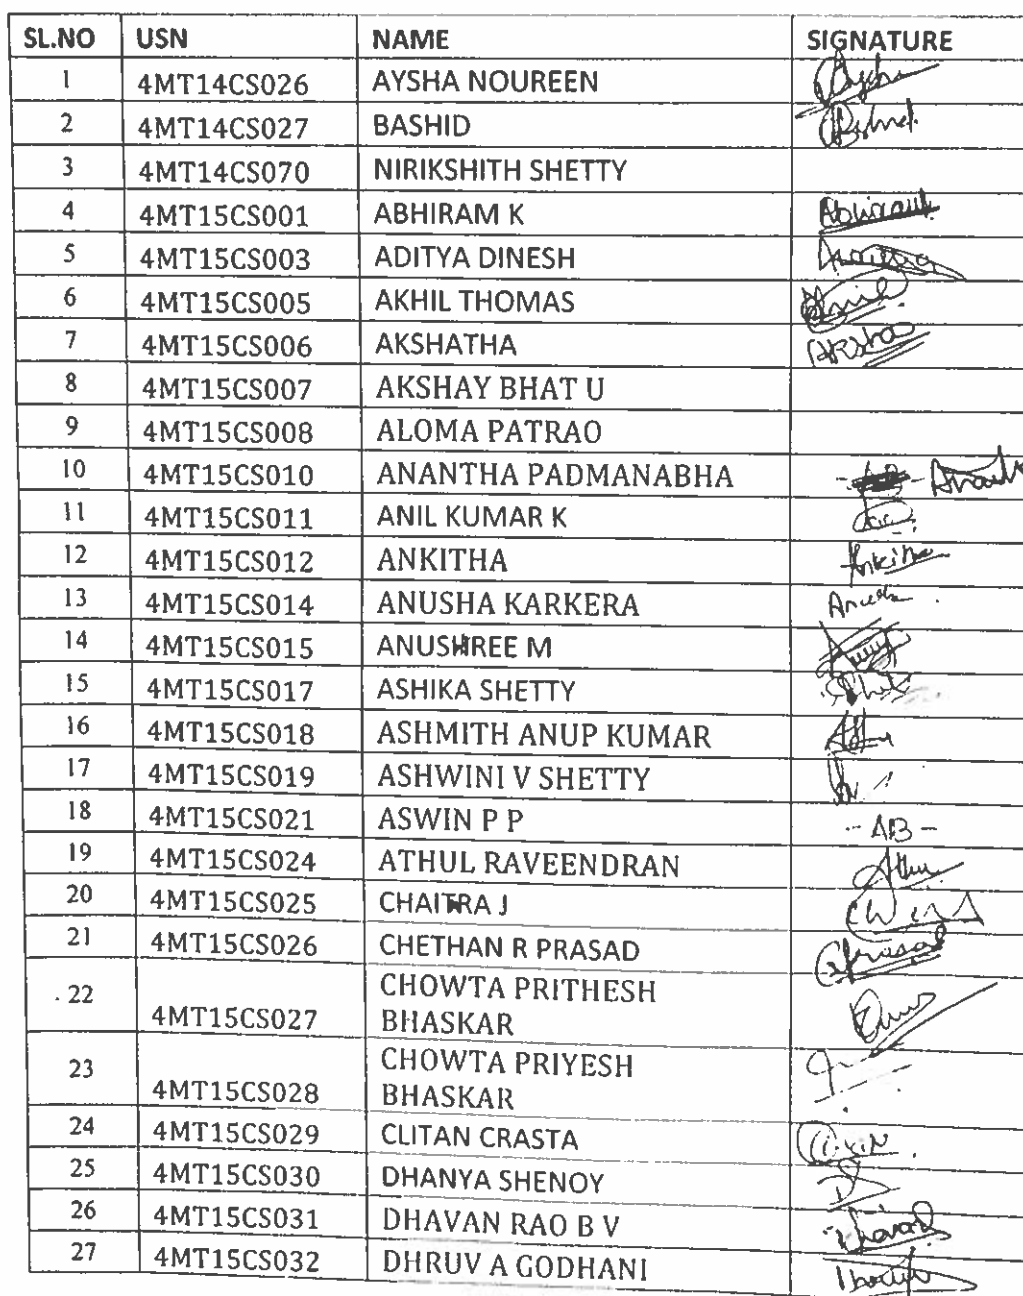 SL.NO USN NAME SIGNATURE
1 4MT14CS026 AYSHA NOUREEN
2 4MT14CS027 BASHID
3 4MT14CS070 NIRIKSHITH SHETTY
4 4MT15CS001 ABHIRAM K Abhiram
5 4MT15CS003 ADITYA DINESH
6 4MT15CS005 AKHIL THOMAS
7 4MT15CS006 AKSHATHA
8 4MT15CS007 AKSHAY BHAT U
9 4MT15CS008 ALOMA PATRAO
10 4MT15CS010 ANANTHA PADMANABHA
11 4MT15CS011 ANIL KUMAR K
12 4MT15CS012 ANKITHA Ankitha
13 4MT15CS014 ANUSHA KARKERA
14 4MT15CS015 ANUSHREE M
15 4MT15CS017 ASHIKA SHETTY
16 4MT15CS018 ASHMITH ANUP KUMAR
17 4MT15CS019 ASHWINI V SHETTY
18 4MT15CS021 ASWIN P P - AB -
19 4MT15CS024 ATHUL RAVEENDRAN
20 4MT15CS025 CHAITRA J
21 4MT15CS026 CHETHAN R PRASAD
22 4MT15CS027 CHOWTA PRITHESH
BHASKAR
23 4MT15CS028 CHOWTA PRIYESH
BHASKAR
24 4MT15CS029 CLITAN CRASTA
25 4MT15CS030 DHANYA SHENOY
26 4MT15CS031 DHAVAN RAO B V
27 4MT15CS032 DHRUV A GODHANI